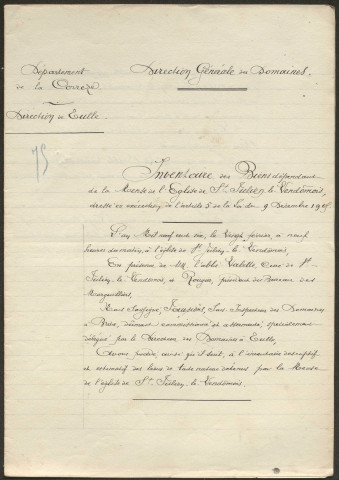 Département
de la Corrèze
Direction Générale des Domaines.
Direction de Tulle
75
Inventaire des Biens dépendant
de la Mense de l'Eglise de St Julien le Vendômois,
dressé en exécution de l'article 3 de la Loi du 9 Décembre 1905.
L'an Mil neuf cent six, le vingt janvier, à neuf
heures du matin, à l'église de St Julien le Vendômois,
En présence de MM. l'abbé Valette, curé de St
Julien le Vendômois, président du Bureau des
Marguilliers,
Nous soussigné, Sous Inspecteur des Domaines
à Brive, dûment commissionné et assermenté, spécialement
délégué par le Directeur des Domaines à Tulle,
Avons procédé ainsi qu'il suit, à l'inventaire descriptif
et estimatif des biens de toute nature détenus par la Mense
de l'église de St Julien le Vendômois.